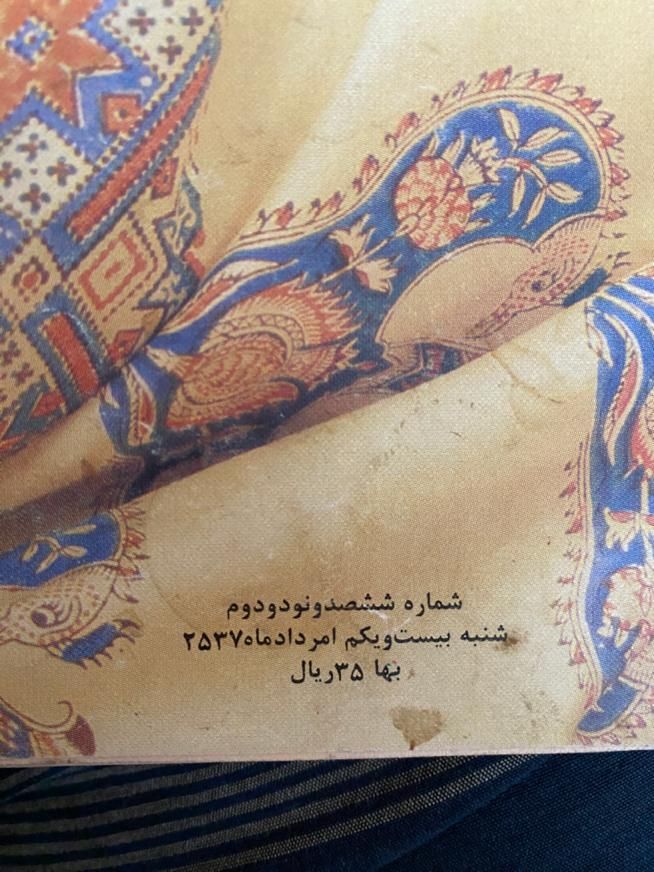 شماره ششصدونودودوم
شنبه بیست‌ویکم امردادماه۲۵۳۷
بها ۳۵ریال